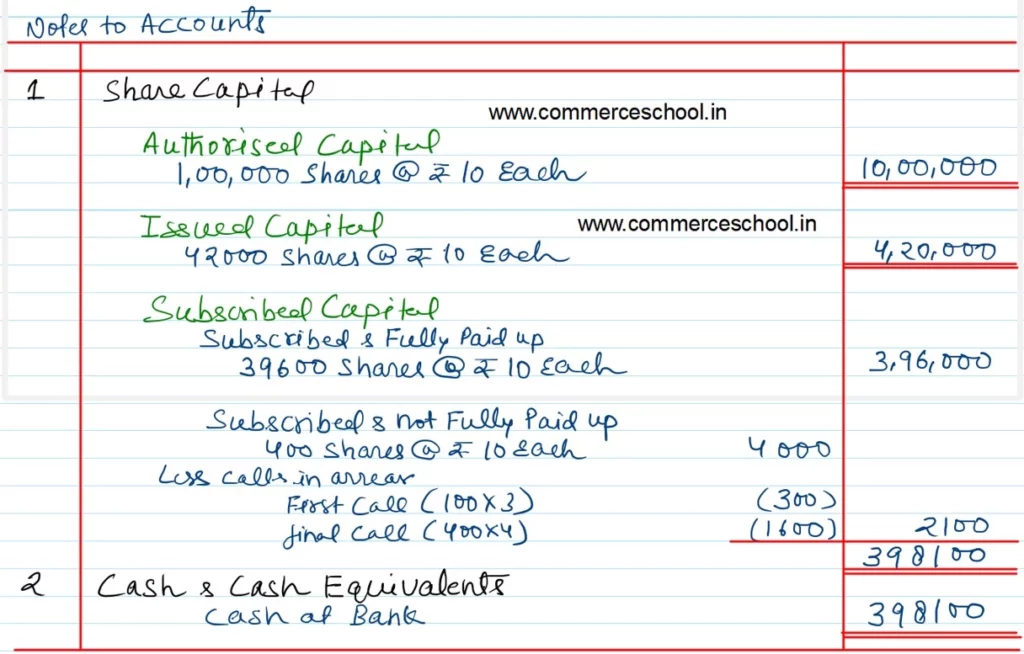 Notes to Accounts
1 Share Capital
www.commerceschool.in
Authorised Capital
1,00,000 Shares @ ₹ 10 Each 10,00,000
Issued Capital www.commerceschool.in
42000 Shares @ ₹ 10 Each 4,20,000
Subscribed Capital
Subscribed & Fully Paid up
39600 Shares @ ₹ 10 Each 3,96,000
Subscribed & not Fully Paid up
400 Shares @ ₹ 10 Each 4000
Less calls in arrear
First Call (100X3) (300)
final Call (400x4) (1600) 2100
398100
2 Cash & Cash Equivalents
Cash at Bank 398100